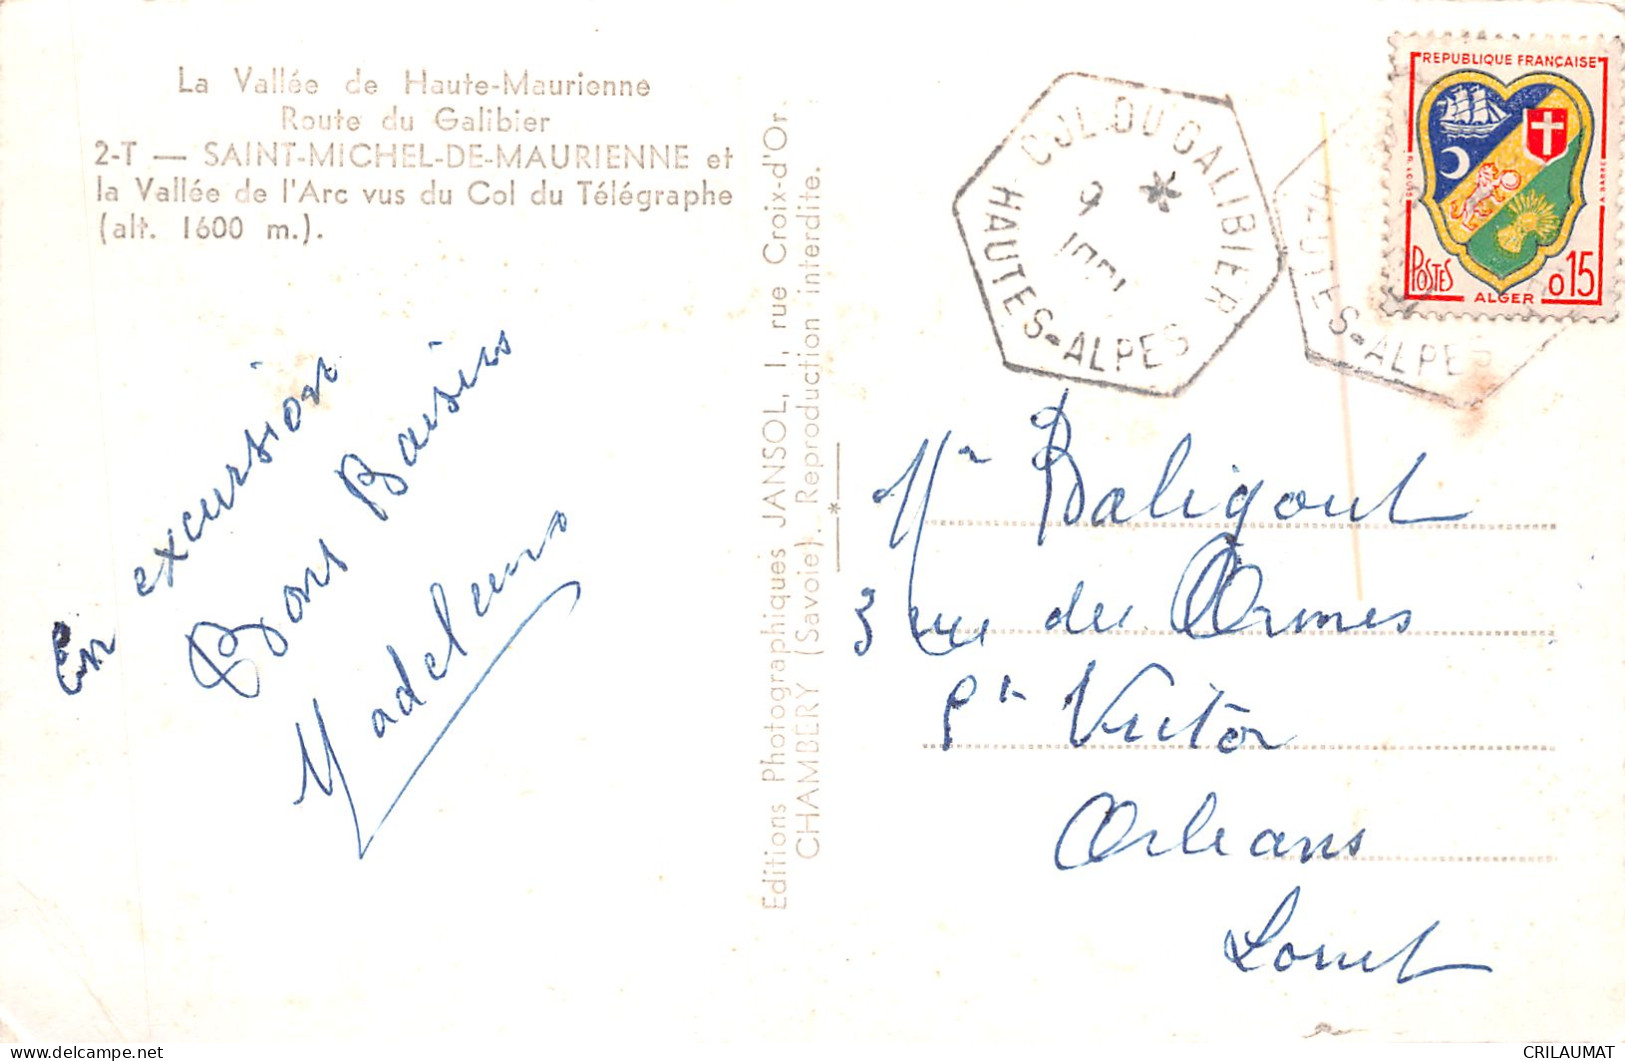 La Vallée de Haute-Maurienne
Route du Galibier
2-T — SAINT-MICHEL-DE-MAURIENNE et
la Vallée de l'Arc vus du Col du Télégraphe
(alt. 1600 m.).
En excursion
Bons Baisers
Editions Photographiques JANSOL, 1, rue Croix-d'Or.
CHAMBERY (Savoie). Reproduction interdite.
COL DU GALIBIER
9
HAUTES-ALPES
HAUTES-ALPES
REPUBLIQUE FRANÇAISE
POSTES
ALGER
0 15
Baligout
3 rue des Ormes
St Victor
Orleans
Loiret
CRILAUMAT